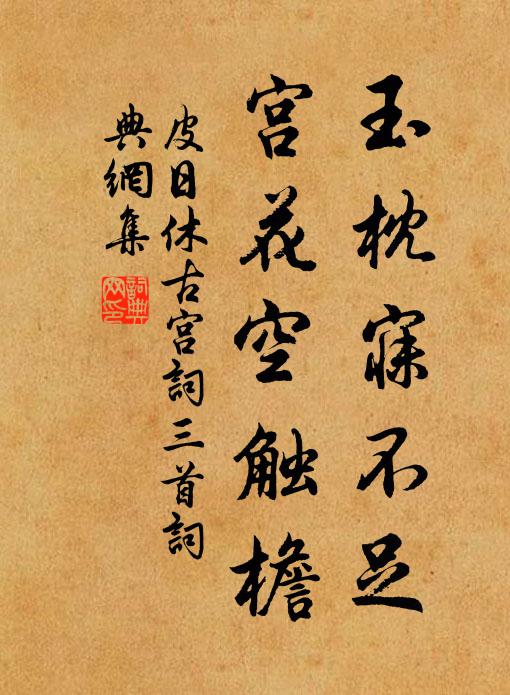 玉枕寐不足
宫花空触檐
皮日休古宫詞三首詞
典網集
詞典
网印